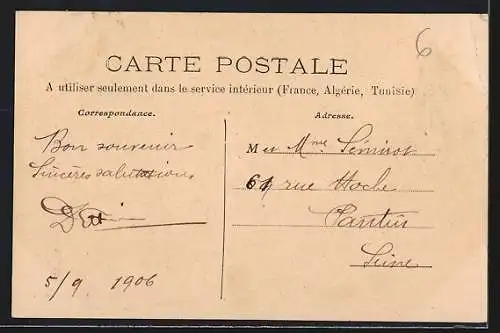 6
CARTE POSTALE
A utiliser seulement dans le service intérieur (France, Algérie, Tunisie)
Correspondance.
Adresse.
Bon souvenir
Sincères salutations
5/9 1906
M et Mme Séminot
61 rue Hoche
Pantin
Seine